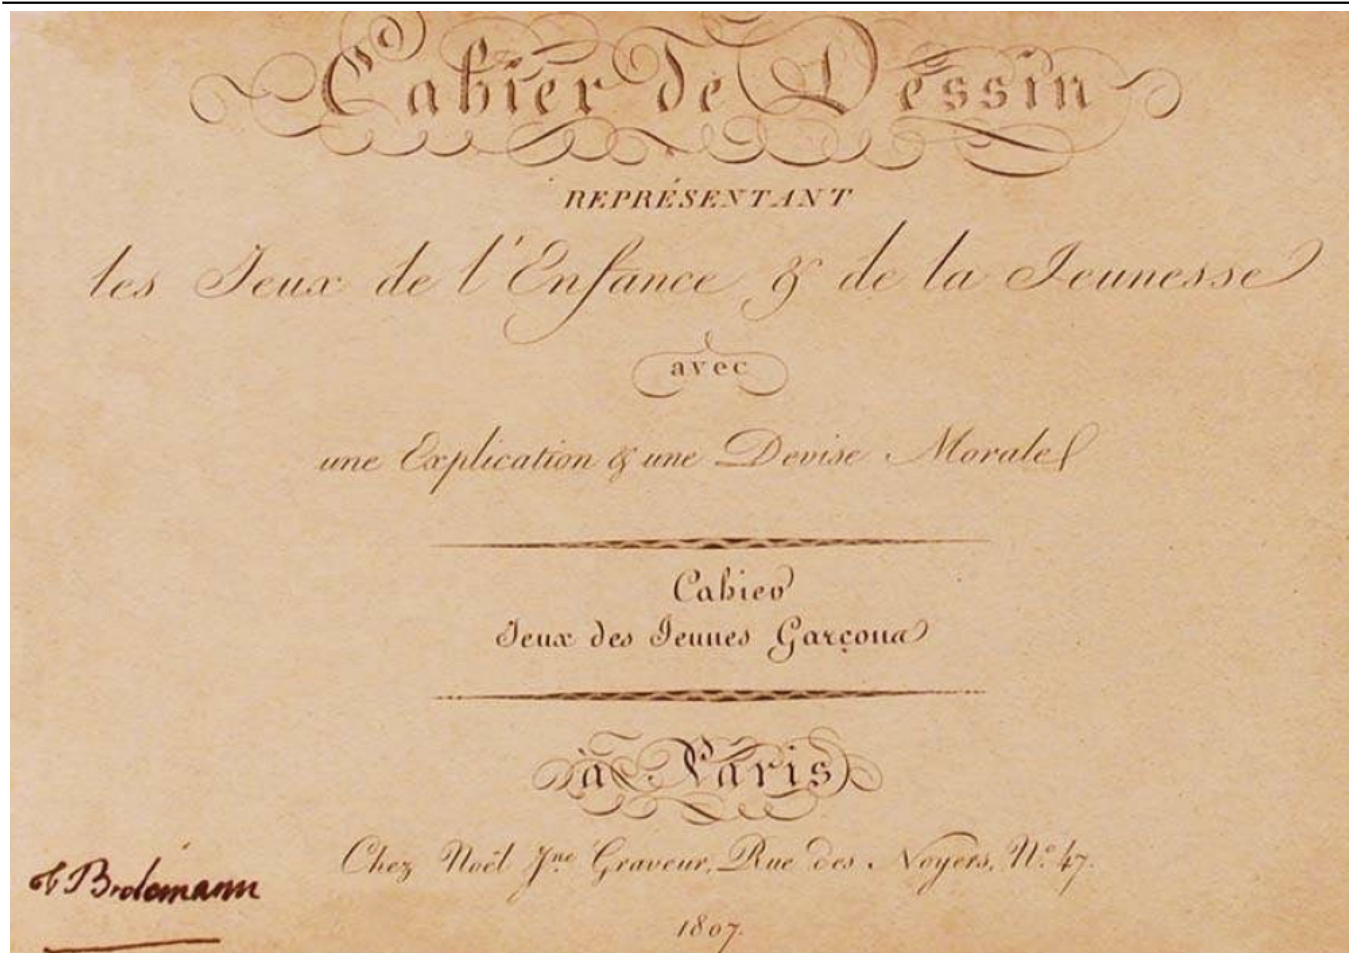 Cahier de Dessin
REPRÉSENTANT
les Jeux de l'Enfance & de la Jeunesse
avec
une Explication & une Devise Morale
Cahier
Jeux des Jeunes Garçons
à Paris
Chez Noël Jne. Graveur, Rue des Noyers, No. 47.
Brolemann
1807.